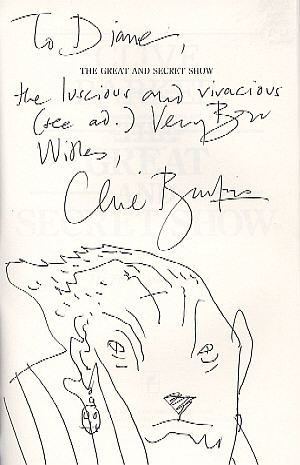 To Diane,
THE GREAT AND SECRET SHOW
the luscious and vivacious
(see ad.) Very Best
Wishes,
Clive Barker